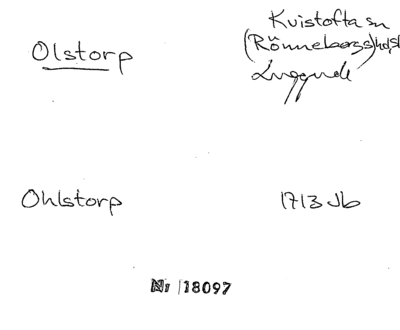 Olstorp
Kvistofta sn
(Rönnebergs) hd, sk
Luggude
Ohlstorp
1713 Jb
Nr 18097